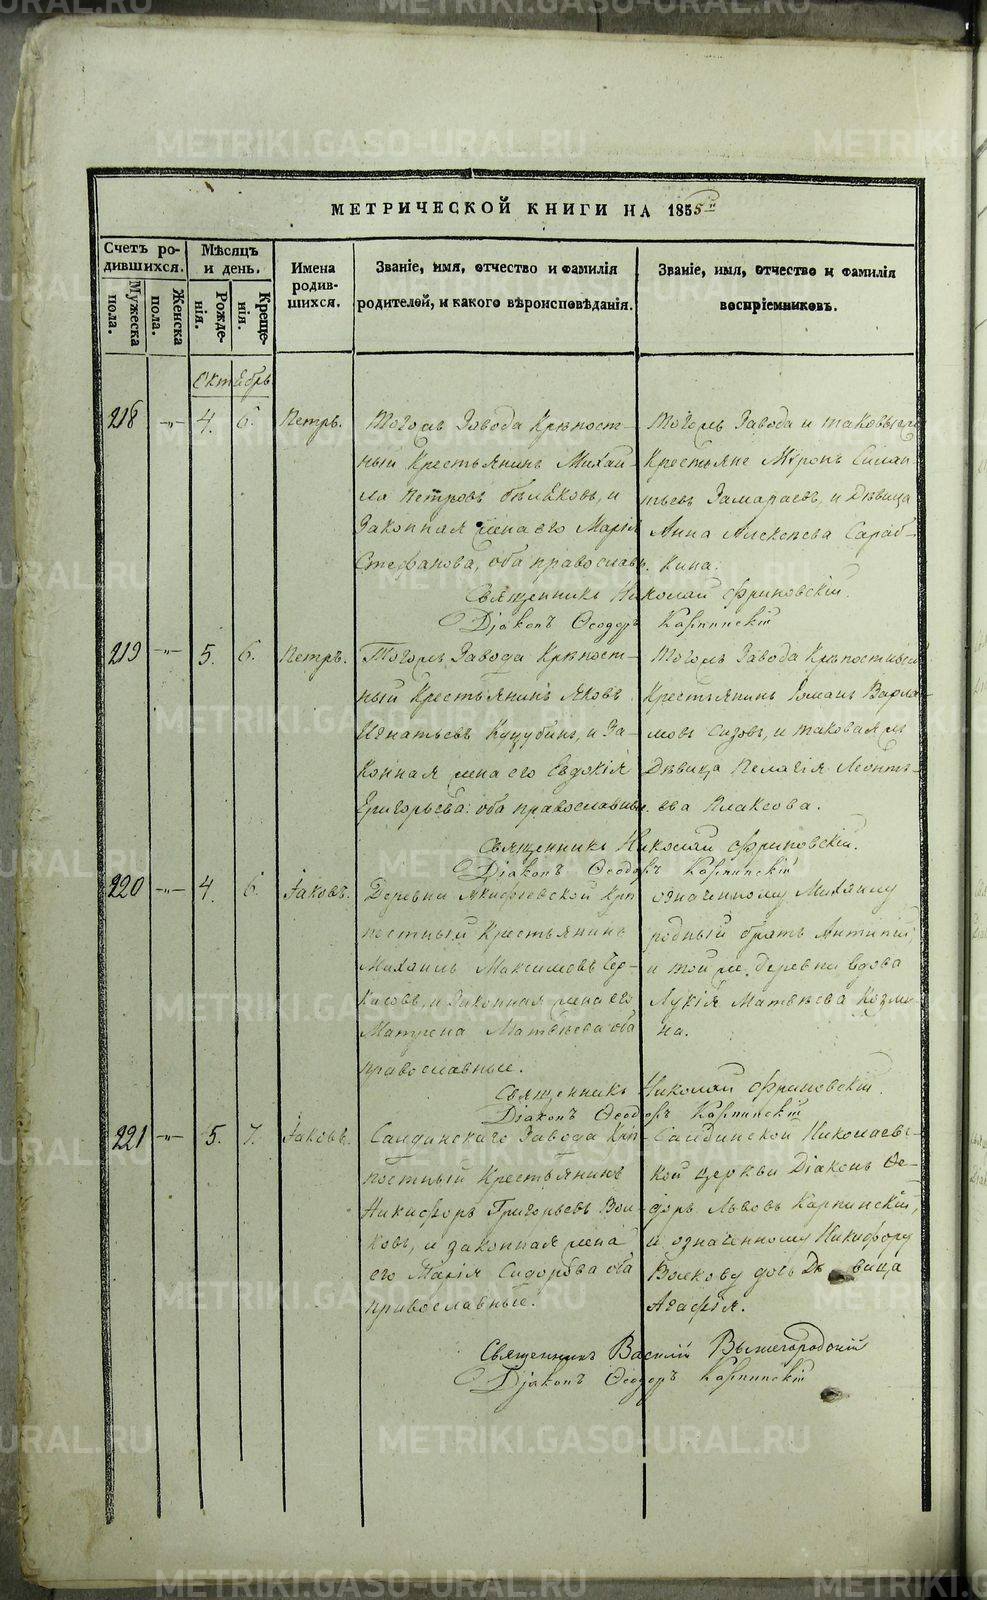 METRIKI.GASO-URAL.RU
МЕТРИЧЕСКОЙ КНИГИ НА 1855й
Счетъ родившихся.
Мужеска пола.
Женска пола.
Мѣсяцъ и день.
Рожденія.
Крещенія.
Имена родившихся.
Званіе, имя, отчество и фамилія родителей, и какого вѣроисповѣданія.
Званіе, имя, отчество и фамилія воспріемниковъ.
Октябрь
218 -"- 4. 6. Петръ.
Тогожъ Завода Крѣпост-
ный Крестьянинъ Михаи-
ла Петровъ Бѣлѣковъ, и
Законная жена его Марія
Стефанова, оба православн.
Тогожъ Завода и таковыежъ
Крестьяне Мѵронъ Силан-
тьевъ Замараевъ, и Дѣвица
Анна Алексѣева
Священникъ Николай Фриновскій.
Діаконъ Ѳеодоръ Карпинскій
219 -"- 5. 6. Петръ.
Тогожъ Завода Крѣпост-
ный Крестьянинъ Яковъ
Игнатьевъ и За-
конная жена его Евдокія
Григорьева: оба православные.
Тогожъ Завода Крѣпостный
Крестьянинъ Романъ Варла-
мовъ Сизовъ, и таковаяжъ
Дѣвица Пелагія Леонть-
ева Плаксова.
Священникъ Николай Фриновскій.
Діаконъ Ѳеодоръ Карпинскій
220 -"- 4. 6. Іаковъ.
Деревни Акинфіевской Крѣ-
постный Крестьянинъ
Михаилъ Максимовъ Чер-
касовъ, и Законная жена его
Матрена Матвѣева оба
православные.
означенному Михаилу
родный братъ Антипій,
и той же деревни вдова
Лукія Матвѣева Козми-
на.
Священникъ Николай Фриновскій
Діаконъ Ѳеодоръ Карпинскій
221 -"- 5. 7. Іаковъ.
Салдинскаго Завода Крѣ-
постный Крестьянинъ
Никифоръ Григорьевъ Вол-
ковъ, и законная жена
его Марія Сидорова оба
православные.
Салдинской Николаевс-
кой церкви Діаконъ Ѳе-
доръ Львовъ Карпинскій,
и означенному Никифору
Волкову дочь Дѣвица
Агафія.
Священникъ Василій Вышегородскій
Діаконъ Ѳеодоръ Карпинскій